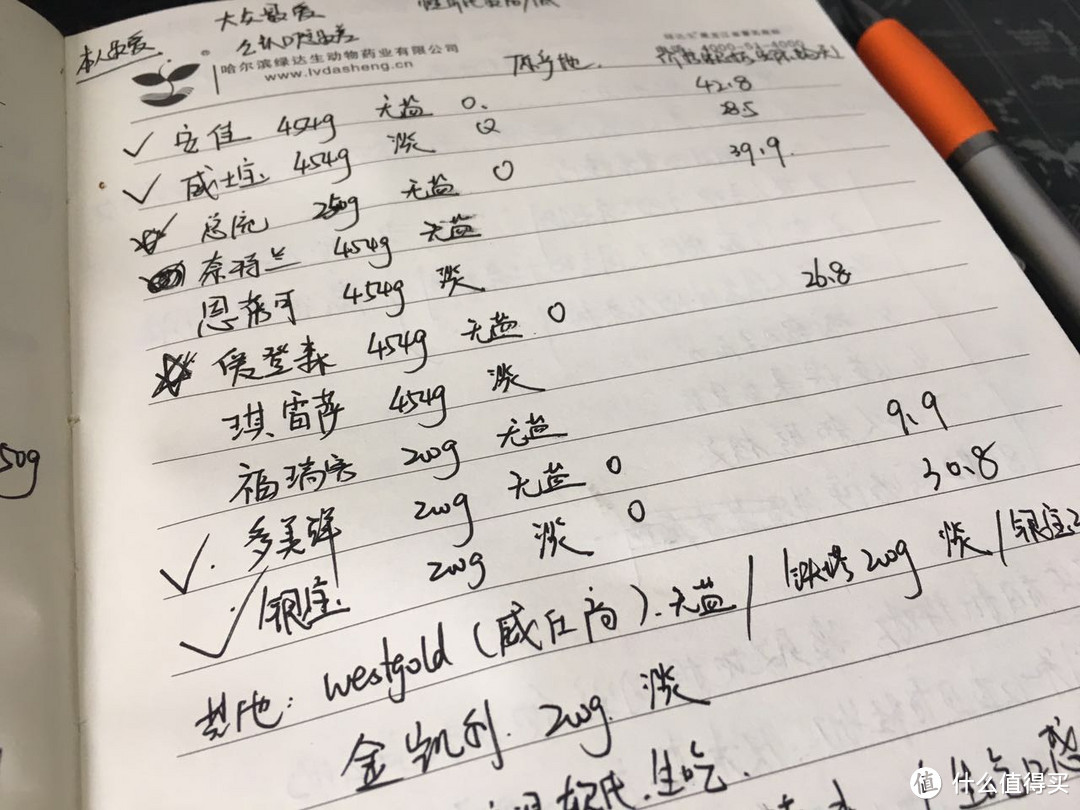 本人最爱 大众最爱
公认口感最差
哈尔滨绿达生动物药业有限公司
www.lvdasheng.com
原产地
✓ 安佳 454g 无盐 O. 42.8
✓ 威士宝 454g 淡 O 285
总统 250g 无盐 O 39.9.
奈特兰 454g 无盐
恩蒂可 454g 淡
爱登森 454g 无盐 O 26.8
琪雷萨 454g 淡
福瑞客 200g 无盐
✓. 多美鲜 200g 无盐 O 9.9
✓ 银宝 200g 淡 O 30.8
其他: westgold (威士高). 无盐 / 铁塔 200g 淡 / 银宝
金凯利. 200g. 淡
生吃.
50g
值 什么值得买